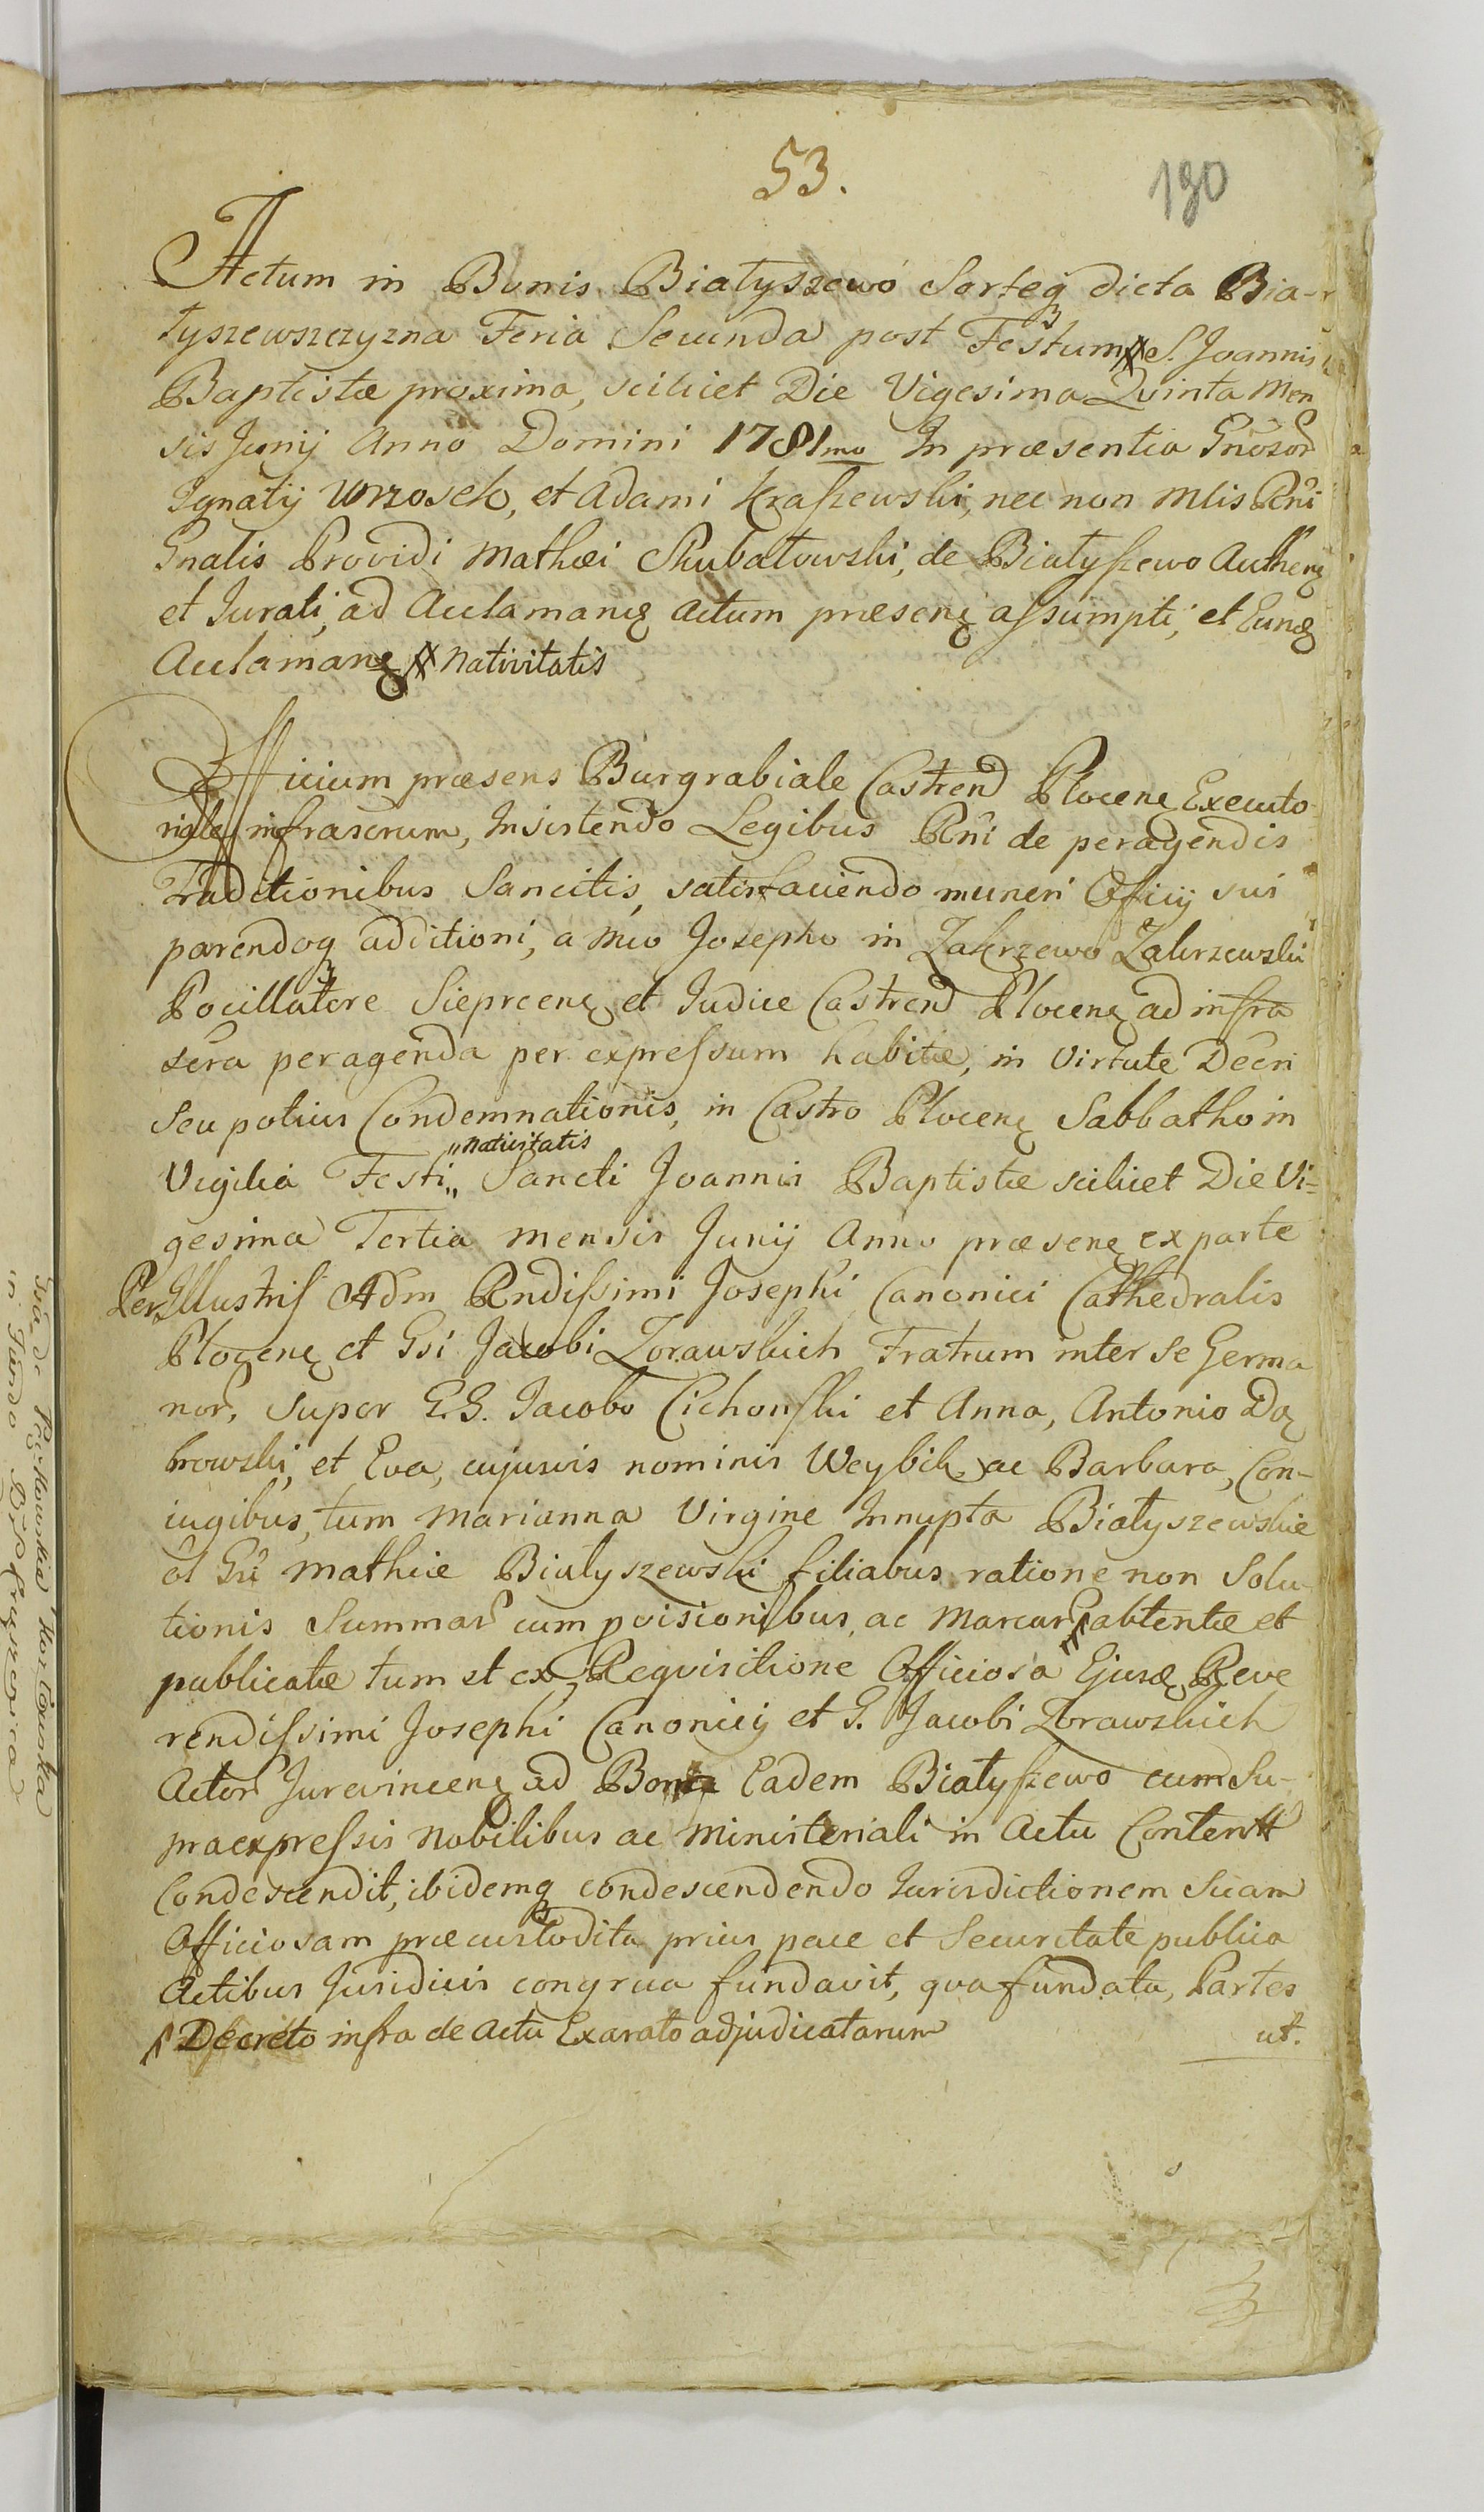 53.
190
Actum in Bonis Białyszewo Sorteq dicta Bia-
łyszewszczyzna Feria Secunda post Festum S. Joannis
Baptistæ proxima, scilicet Die Vigesima Qvinta Men
sis Junij Anno Domini 1781mo In præsentia Gnosor
Ignatij Wrzosek, et Adami Kraszewski, nec non Mlis Rni
Gnalis Providi Mathæi Skubatowski, de Białyszewo Authen
et Jurati, ad Aclamang Actum præsen assumpti, et Eunq
Aclamang # Nativitatis
Officium præsens Burgrabiale Castren Plocen Executo-
riale infrascrum, Insistendo Legibus Rni de peragendis
Traditionibus Sancitis, satisfaciendo muneri Officij sui
parendoq additioni, a Mco Josepho in Zakrzewo Zakrzewski
Pocillatore Sieprcen et Judice Castren Plocen ad infra
scra peragenda per expressum habitæ, in Virtute Decri
Seu potius Condemnationis, in Castro Plocen Sabbatho in
„Nativitatis
Vigilia Festi„ Sancti Joannis Baptistæ scilicet Die Vi=
gesima Tertia Mensis Junij Anno præsen ex parte
Per Illustris Adm Rndissimi Josephi Canonici Cathedralis
Plocen et Gsi Jacobi Zorawskich Fratrum inter se Germa
nor, super G.G. Jacobo Cichonski et Anna, Antonio Dą
browski, et Eva, cujusvis nominis Weybik ac Barbara, Con-
iugibus, tum Marianna Virgine Innupta Białyszewskie
ol Gi Mathiæ Białyszewski filiabus ratione non Solu-
tionis Summar cum pvisionibus, ac Marcar obtentæ et
publicatæ tum et ex Reqvisitione Officiosa Ejusd Reve
rendissimi Josephi Canonicij et G. Jacobi Zorawskich
Actor Jurevincen ad Bona Eadem Białyszewo cum Su-
praexpressis Nobilibus ac Ministeriali in Actu Content
Condescendit, ibidemq condescendendo Jurisdictionem Suam
Officiosam præcustodita prius pace et Securitate publica
Actibus Juridicis congrua fundavit, qva fundata, Partes
Decreto infra de Actu Exarato adjudicatarum
ut.